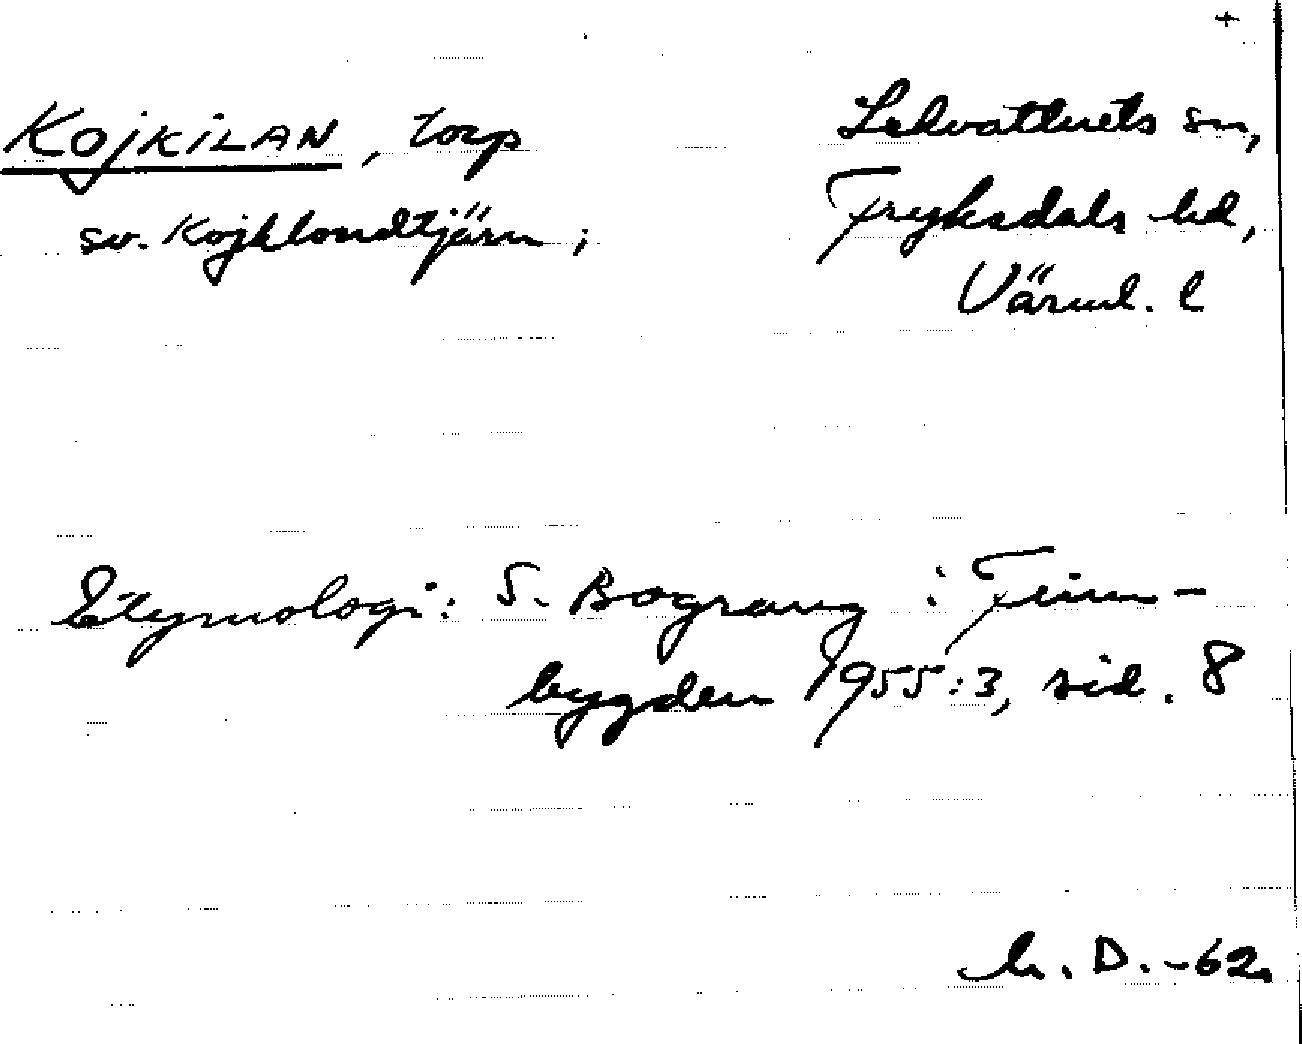 +
KOJKILAN, torp
sv. Kojklondtjärn;
Lekvattnets sn,
Fryksdals hd,
Värml. l
Etymologi: S. Bograng i Finn-
bygden 1955:3, sid. 8
D.-62